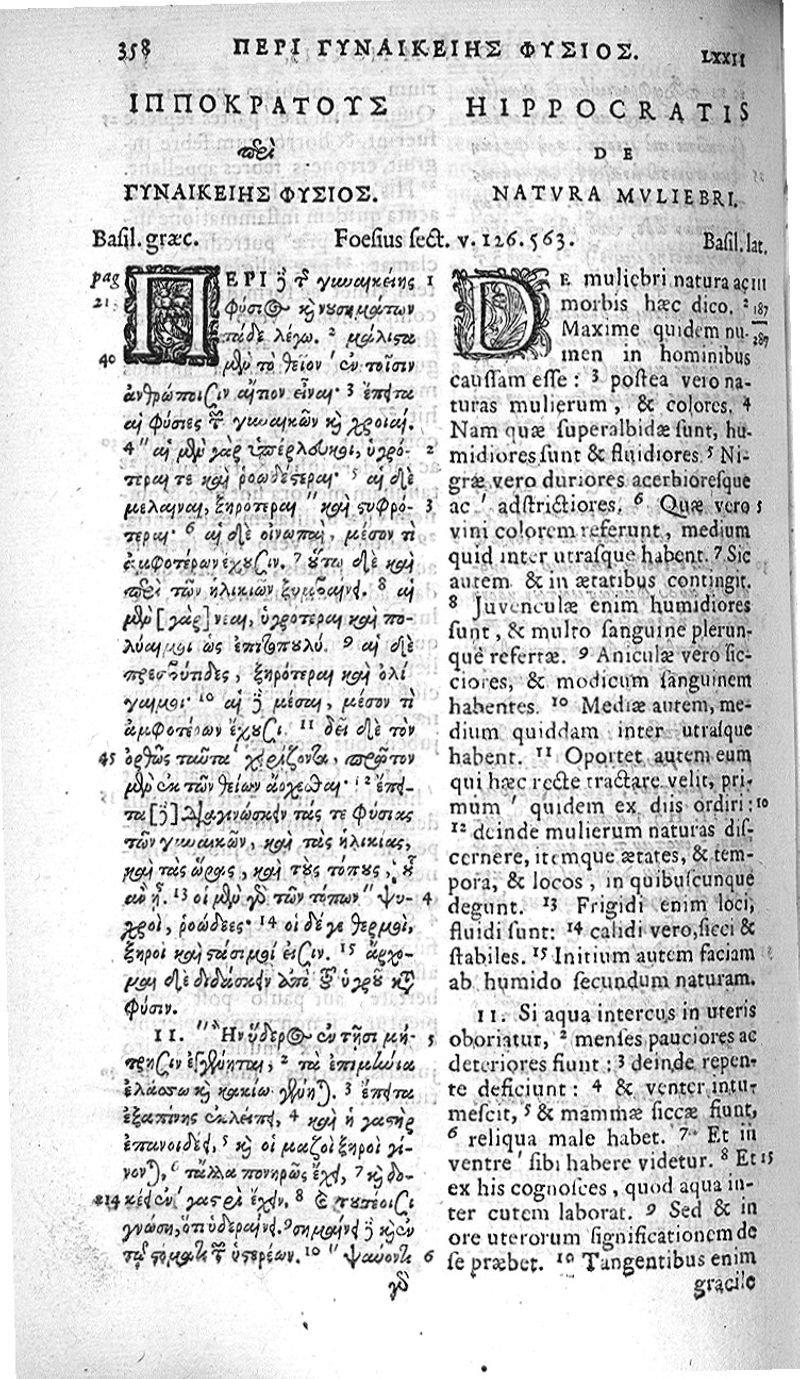 358 ΠΕΡΙ ΓΥΝΑΙΚΕΙΗΣ ΦΥΣΙΟΣ. LXXII
ΙΠΠΟΚΡΑΤΟΥΣ
περὶ
ΓΥΝΑΙΚΕΙΗΣ ΦΥΣΙΟΣ.
HIPPOCRATIS
DE
NATVRA MVLIEBRI.
Basil. græc. Foesius sect. v. 126.563. Basil. lat.
pag ΠΕΡΙ δὲ τῆς γυναικείης 1
21 φύσιος καὶ νουσημάτων
τάδε λέγω. 2 μάλιστα
40 μὲν τὸ θεῖον ἐν τοῖσιν
ἀνθρώποισιν αἴτιον εἶναι· 3 ἔπειτα
αἱ φύσιες τῶν γυναικῶν καὶ χροιαί.
4 " αἱ μὲν γὰρ ὑπέρλευκοι, ὑγρό- 2
τεραί τε καὶ ῥοωδέστεραι· 5 αἱ δὲ
μέλαιναι, ξηρότεραι " καὶ στυφρό- 3
τεραι· 6 αἱ δὲ οἰνωπαὶ, μέσον τι
ἀμφοτέρων ἔχουσιν. 7 οὕτω δὲ καὶ
περὶ τῶν ἡλικιῶν ξυμβαίνει. 8 αἱ
μὲν [γὰρ] νέαι, ὑγρότεραι καὶ πο-
λύαιμοι ὡς ἐπιτοπουλύ. 9 αἱ δὲ
πρεσβύτιδες, ξηρότεραι καὶ ὀλί
γαιμοι· 10 αἱ δὲ μέσαι, μέσον τι
ἀμφοτέρων ἔχουσι. 11 δεῖ δὲ τὸν
45 ὀρθῶς ταῦτα ' χειρίζοντα, πρῶτον
μὲν ἐκ τῶν θείων ἄρχεσθαι· 12 ἔπει-
τα [δὲ] διαγινώσκειν τάς τε φύσιας
τῶν γυναικῶν, καὶ τὰς ἡλικίας,
καὶ τὰς ὥρας, καὶ τοὺς τόπους, οὗ
ἂν ᾖ. 13 οἱ μὲν γὰρ τῶν τόπων " ψυ- 4
χροὶ, ῥοώδεες· 14 οἱ δέ γε θερμοὶ,
ξηροὶ καὶ στάσιμοί εἰσιν. 15 ἄρχο-
μαι δὲ διδάσκειν ἀπὸ τοῦ ὑγροῦ κατὰ
φύσιν.
II. "Ἢν ὕδερος ἐν τῇσι μή- 5
τρῃσιν ἐγγένηται, 2 τὰ ἐπιμήνια
ἐλάσσω καὶ κακίω γίνεται. 3 ἔπειτα
ἐξαπίνης ἐκλείπει, 4 καὶ ἡ γαστὴρ
ἐπανοιδέει, 5 καὶ οἱ μαζοὶ ξηροὶ γί-
νονται, 6 τἄλλα πονηρῶς ἔχει, 7 καὶ δο-
214 κέει ἐν ' γαστρὶ ἔχειν. 8 καὶ τουτέοισι
γνώσῃ, ὅτι ὑδεραίνει. 9 σημαίνει δὲ καὶ ἐν
τῷ στόματι τῶν ὑστερέων. 10 " ψαύοντι 6
γὰρ
DE muliebri natura ac III
morbis hæc dico. 2 187
Maxime quidem nu- 287
men in hominibus
caussam esse : 3 postea vero na-
turas mulierum, & colores. 4
Nam quæ superalbidæ sunt, hu-
midiores sunt & fluidiores. 5 Ni-
græ vero duriores acerbioresque
ac ' adstrictiores. 6 Quæ vero 5
vini colorem referunt, medium
quid inter utrasque habent. 7 Sic
autem & in ætatibus contingit.
8 Juvenculæ enim humidiores
sunt, & multo sanguine plerun-
que refertæ. 9 Aniculæ vero sic-
ciores, & modicum sanguinem
habentes. 10 Mediæ autem, me-
dium quiddam inter utrasque
habent. 11 Oportet autem eum
qui hæc recte tractare velit, pri-
mum ' quidem ex diis ordiri : 10
12 deinde mulierum naturas dis-
cernere, itemque ætates, & tem-
pora, & locos, in quibuscunque
degunt. 13 Frigidi enim loci,
fluidi sunt: 14 calidi vero, sicci &
stabiles. 15 Initium autem faciam
ab humido secundum naturam.
II. Si aqua intercus in uteris
oboriatur, 2 menses pauciores ac
deteriores fiunt : 3 deinde repen-
te deficiunt : 4 & venter intu-
mescit, 5 & mammæ siccæ fiunt,
6 reliqua male habet. 7 Et in
ventre ' sibi habere videtur. 8 Et 15
ex his cognosces, quod aqua in-
ter cutem laborat. 9 Sed & in
ore uterorum significationem de
se præbet. 10 Tangentibus enim
gracile